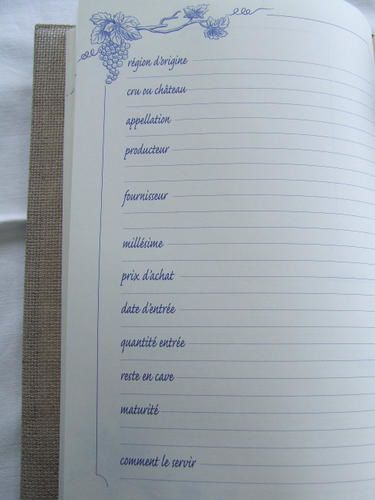 région d'origine
cru ou château
appellation
producteur
fournisseur
millésime
prix d'achat
date d'entrée
quantité entrée
reste en cave
maturité
comment le servir